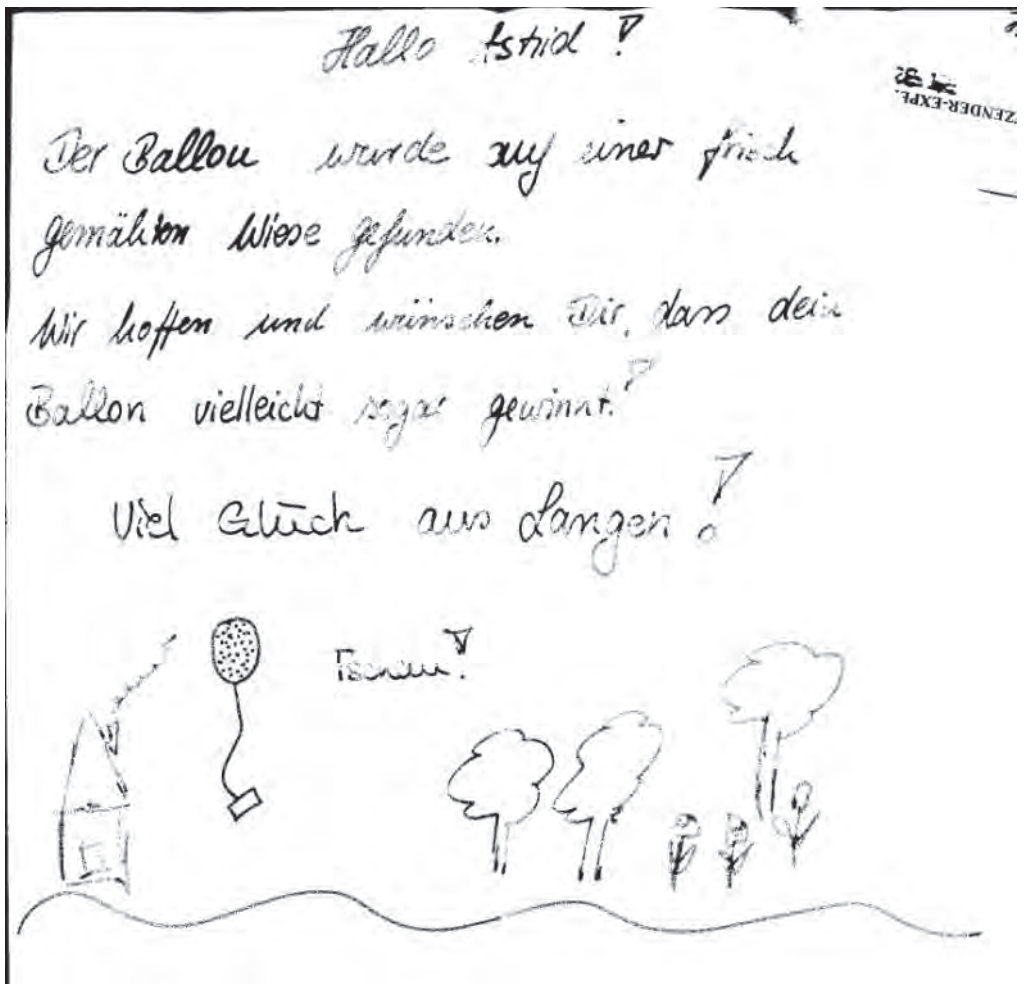 Hallo Astrid!
Der Ballon wurde auf einer frisch
gemähten Wiese gefunden.
Wir hoffen und wünschen Dir, dass dein
Ballon vielleicht sogar gewinnt!
Viel Glück aus Langen!
Tschau!
ZENDER-EXPL.